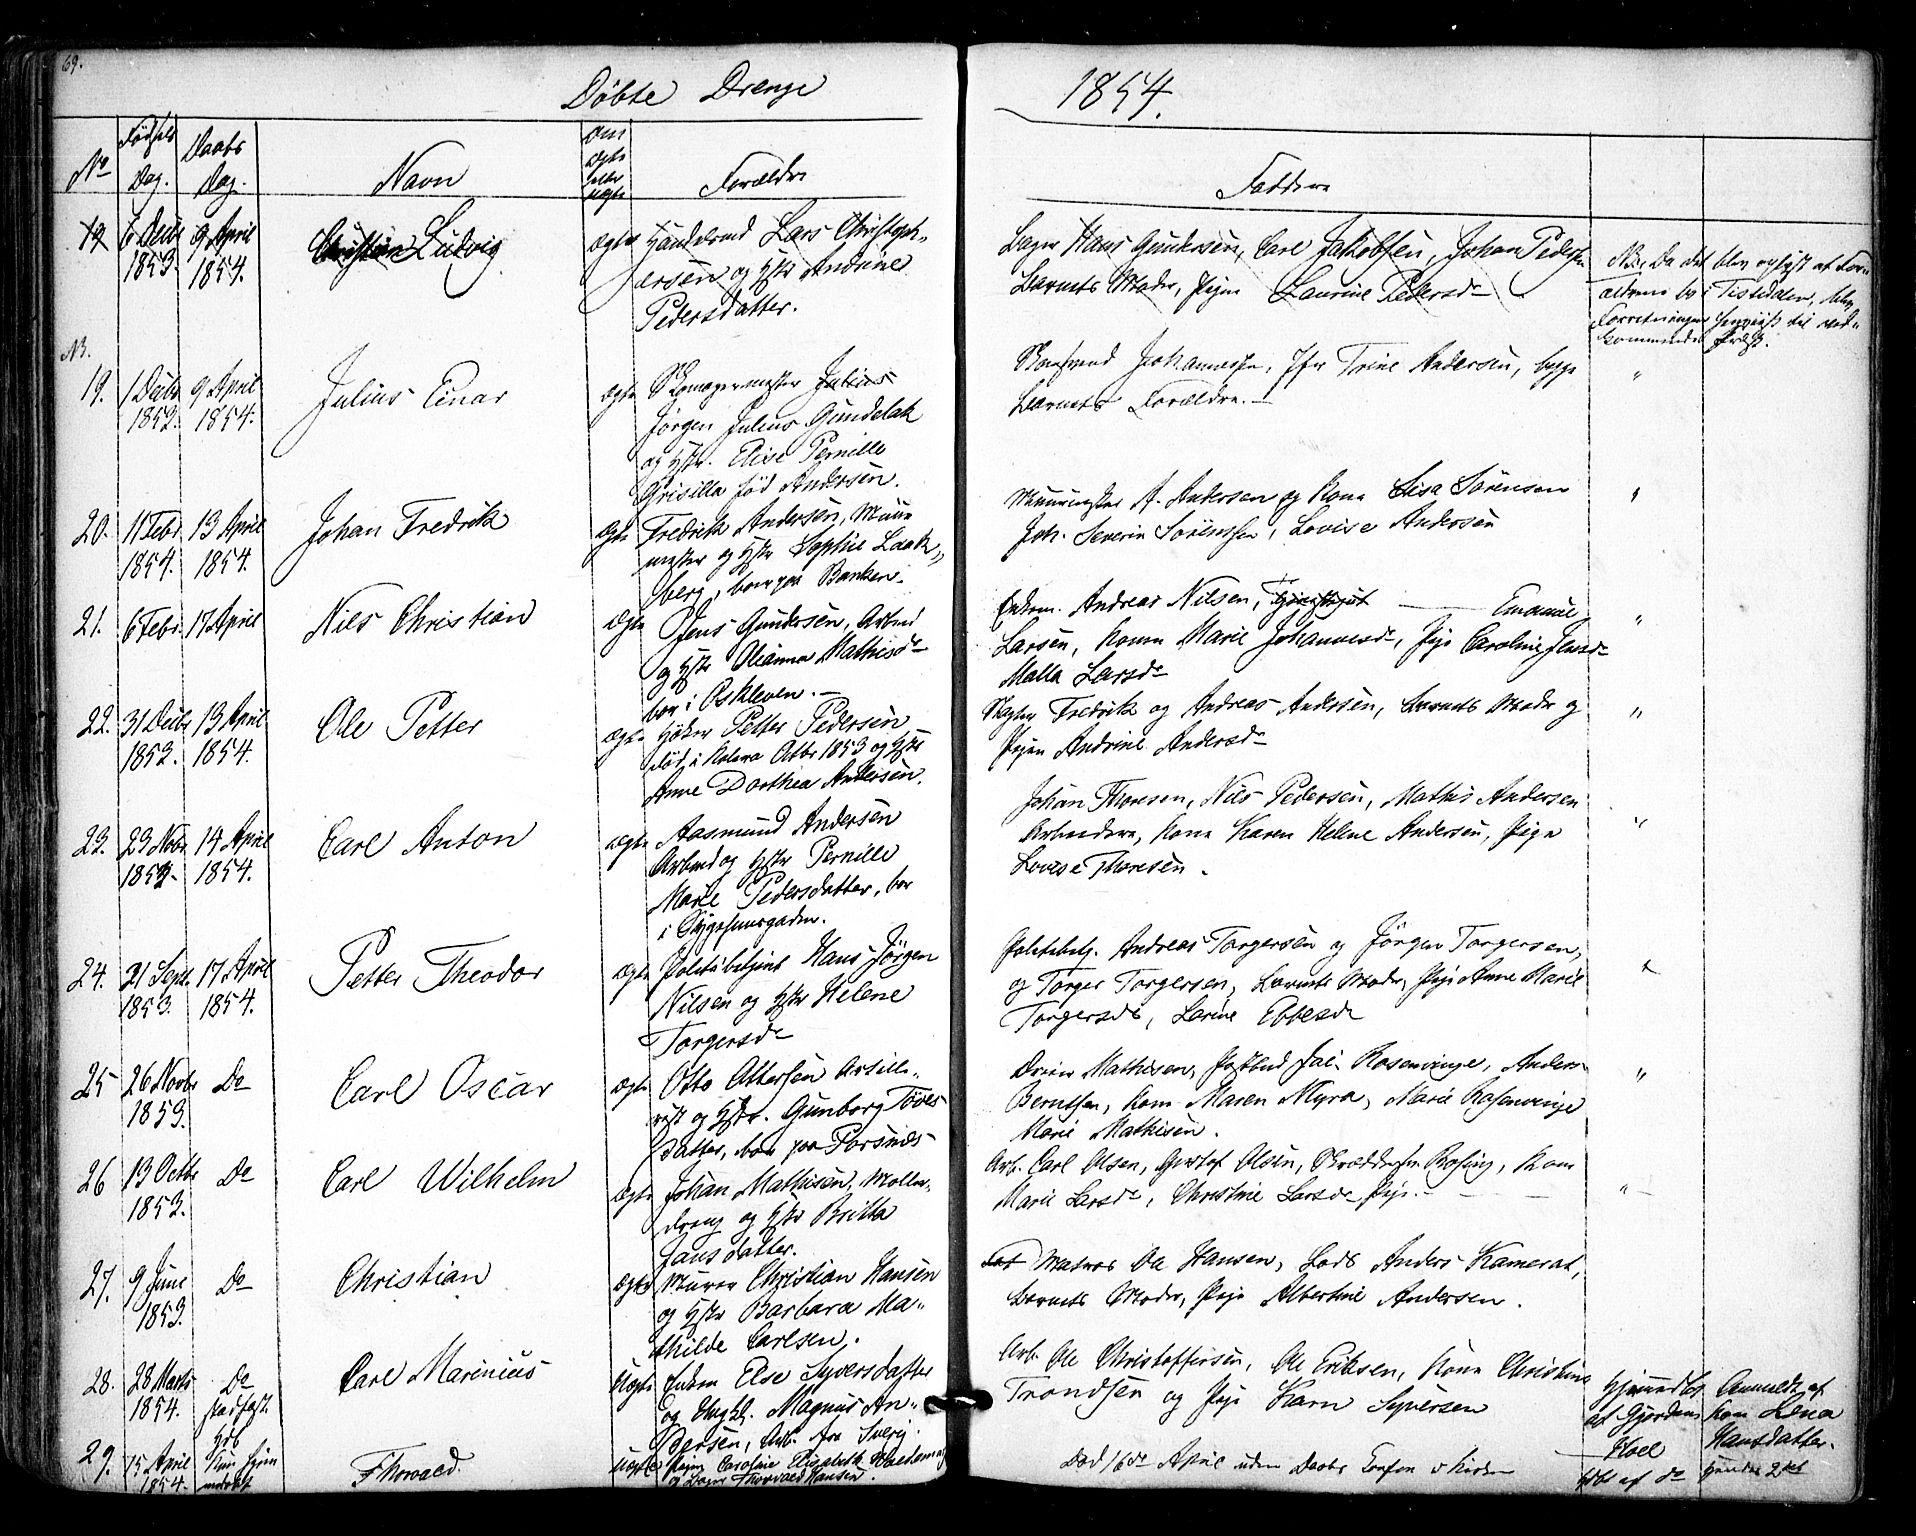 69.
Döbte Drenge 1854.
No Fødsels Dag. Daabs Dag. Navn Om Ægte eller Uægte Forældre Faddere
19 6 Decbr 1853. 9 April 1854. Christian Ludvig ægte Lars Christoph-
ersen og Hstr Andrine
Pedersdatter.
Hans Gundersen, Carl Jakobsen, Johan Pedersen
Barnets Moder, Pige Laurine Pedersd
NB. Da det blev oplyst at For-
ældrene bo i Tistedalen, blev
Forretningen henviist til ved-
kommende Præst.
NB.
19. 1 Decbr 1853. 9 April 1854. Julius Einar ægte Skomagermester Julius
Jørgen Julius Gundelak
og Hstr. Elise Pernille
Grisilla fød Andersen.
Johannesen, Jfr Trine Andersen, begge
Barnets Forældre. "
20. 11 Febr 1854. 13 April 1854. Johan Fredrik ægte Fredrik Andersen, Muur
mester og Hstr Sophie Laak-
berg, boer paa Banken.
Muurmester A. Andersen og Kone Lisa Sørensen
Joh. Severin Sørenssen, Lovise Andersen "
21. 6 Febr 17 April Nils Christian ægte Jens Gundersen, Arbmd
og Hstr Oleanna Mathisd
bor i Oskleven.
Enkem. Andreas Nilsen, Emanuel
Larsen, Konen Marie Johannesd, Pige Caroline Jensd
Malla Larsd "
22. 31 Decbr 1853. 13 April 1854. Ole Petter ægte Høker Petter Pedersen
død i Kolera Octbr 1853 og Hstr
Anne Dorthea Andersen.
Fredrik og Andreas Andersen, Barnets Moder og
Pigen Andrine Andersd "
23. 23 Novbr 1853. 14 April 1854. Carl Anton ægte Aasmund Andersen
Arbmd og Hstr Pernille
Marie Pedersdatter, bor
i Sygehuusgaden.
Johan Thoresen, Nils Pedersen, Mathis Andersen
Arbeidere, Kone Karen Helene Andersen, Pige
Lovise Thoresen. "
24. 21 Sept. 1853. 17 April 1854. Petter Theodor ægte Politibetjent Hans Jörgen
Nilsen og Hstr Helene
Torgersd
Politibetj. Andreas Torgersen og Jörgen Torgersen,
og Torger Torgersen, Barnets Moder, Pige Anne Marie
Torgersd, Larine Ebbesd
25 26 Novbr 1853. Do Carl Oscar ægte Otto Ottersen Artille-
rist og Hstr. Gunborg Toves-
datter, boe paa Forsnæs
Mathisen, Postbud Jac. Rosenvinge, Anders
Berntsen, Kone Maren Myra, Marie Rosenvinge
Marie Mathisen. "
26 13 Octbr 1853. Do Carl Wilhelm ægte Johan Mathisen, Mølle-
dreng og Hstr Britta
Jansdatter.
Arb. Carl Olsen, Gustaf Olsen, Kone
Marie Larsd, Christine Larsd Pige. "
27. 9 Juni 1853. Do Christian ægte Murer Christian Hansen
og Hstr Barbara Ma-
thilde Carlsen.
Matros Ole Hansen, Lods Anders Kamerat,
Barnets Moder, Pige Albertine Andersen.
28. 28 Marts 1854. Do stadfæst. Hdb Carl Marinius Uægte Enken Else Syversdatter
og Ungkl. Magnus An-
dersen, Arb. fra Sverig.
Arb. Ole Christoffersen, Ole Eriksen, Kone Christine
Trondsen og Pige Karn Syversen
Hjemmedbt Anmeldt af
af Gjordem. Kone Lena
Koel Hansdatter.
29. 15 April 1854. Kun hjem medbt Thorvald. Uægte Pigen Caroline Elisabeth
og Thorvald Hansen.
Død 16de April uden Daabs i Kirken
Hdbt af do